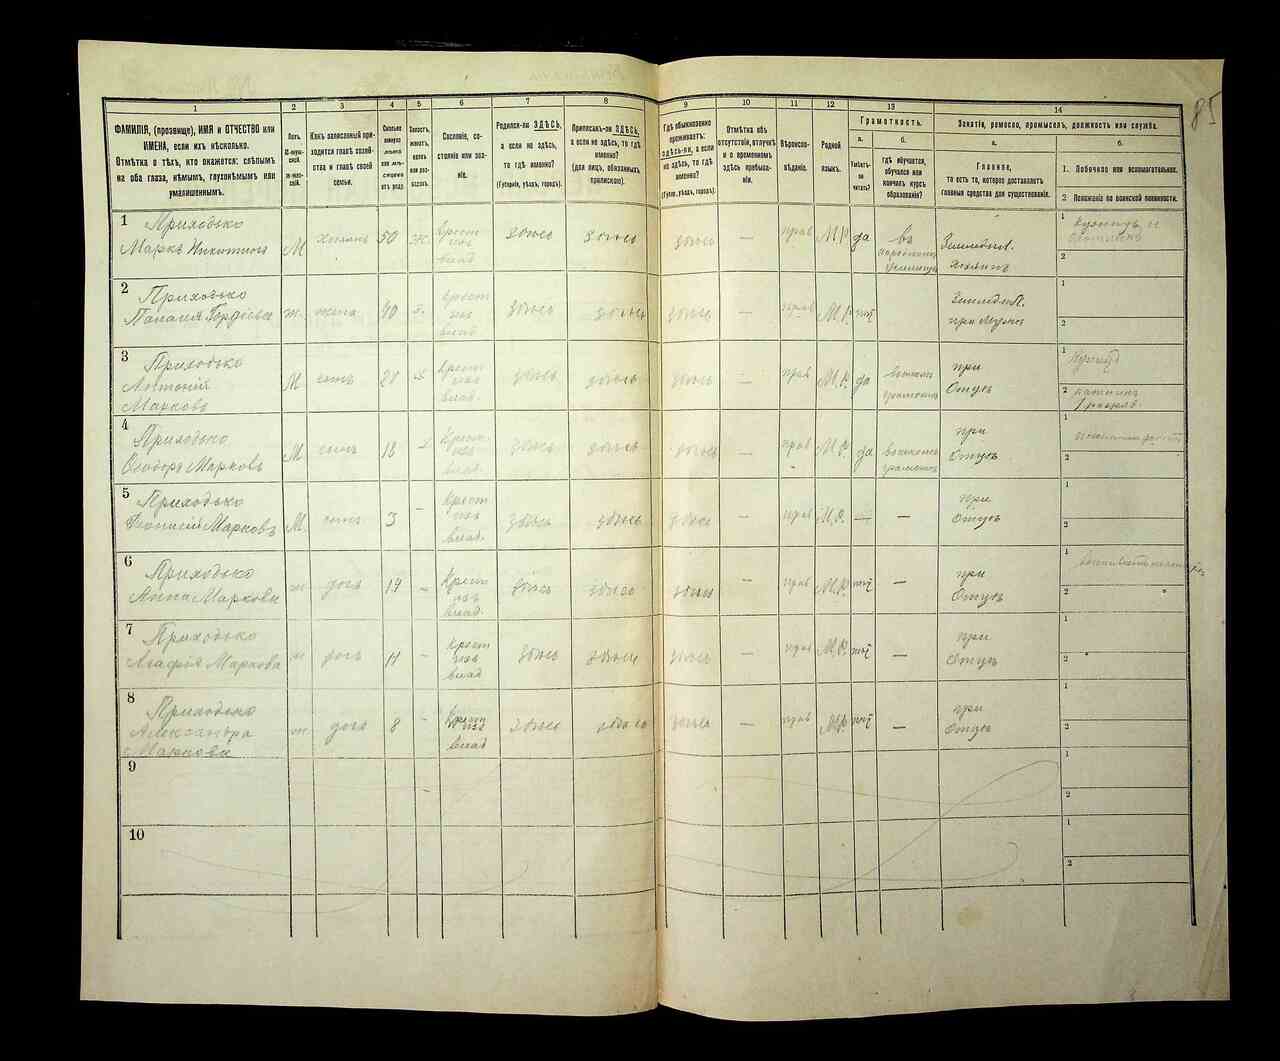 85
1
2
3
4
5
6
7
8
9
10
11
12
13
14
ФАМИЛІЯ, (прозвище), ИМЯ и ОТЧЕСТВО или
ИМЕНА, если ихъ нѣсколько.
Отмѣтка о тѣхъ, кто окажется: слѣпымъ
на оба глаза, нѣмымъ, глухонѣмымъ или
умалишеннымъ.
Полъ.
М-муж-
ской.
Ж-жен-
скій.
Какъ записанный при-
ходится главѣ хозяй-
ства и главѣ своей
семьи.
Сколько
минуло
лѣтъ
или мѣ-
сяцевъ
отъ роду.
Холостъ,
женатъ,
вдовъ
или раз-
веденъ.
Сословіе, со-
стояніе или зва-
ніе.
Родился-ли ЗДѢСЬ,
а если не здѣсь,
то гдѣ именно?
(Губернія, уѣздъ, городъ).
Приписанъ-ли ЗДѢСЬ,
а если не здѣсь, то гдѣ
именно?
(для лицъ, обязанныхъ
припискою).
Гдѣ обыкновенно
проживаетъ:
ЗДѢСЬ-ли, а если
не здѣсь, то гдѣ
именно?
(Губер., уѣздъ, городъ).
Отмѣтка объ
отсутствіи, отлучкѣ
и о временномъ
здѣсь пребыва-
ніи.
Вѣроиспо-
вѣданіе.
Родной
языкъ.
Грамотность.
а.
Умѣетъ-
ли чи-
тать?
б.
гдѣ обучается,
обучался или
кончилъ курсъ
образованія?
Занятіе, ремесло, промыселъ, должность или служба.
а.
Главное,
то есть то, которое доставляетъ
главныя средства для существованія.
б.
1. Побочное или вспомогательное.
2 Положеніе по воинской повинности.
1
Приходько
Маркъ
М
хозяинъ
50
ж.
Крест
изъ
влад
здѣсь
здѣсь
здѣсь
—
прав
М.Р.
да
въ
народномъ
училищѣ
Земледѣл.
хозяинъ
1
2
2
Приходько
ж.
жена
40
з.
Крест
изъ
влад
здѣсь
здѣсь
здѣсь
—
прав
М.Р.
нѣт
Земледѣл.
при мужѣ
1
2
3
Приходько
Антоній
Марковъ
М
сынъ
20
Крест
изъ
влад.
здѣсь
здѣсь
здѣсь
—
прав
М.Р.
да
при
Отцѣ
1
2
4
Приходько
Ѳеодоръ Марковъ
М
сынъ
18
Крест
изъ
влад
здѣсь
здѣсь
здѣсь
—
прав
М.Р.
да
при
Отцѣ
1
2
5
Приходько
Марковъ
М
сынъ
3
—
Крест
изъ
влад.
здѣсь
здѣсь
здѣсь
—
прав
М.Р.
—
—
при
Отцѣ
1
2
6
Приходько
Анна Маркова
ж
дочь
14
—
Крест
изъ
влад.
здѣсь
здѣсь
здѣсь
—
прав
М.Р.
нѣт
—
при
Отцѣ
1
2
7
Приходько
Агафія Маркова
ж
дочь
11
—
Крест
изъ
влад
здѣсь
здѣсь
здѣсь
прав
М.Р.
нѣт
—
при
Отцѣ
1
2
8
Приходько
Александра
Маркова
ж
дочь
8
—
Крест
изъ
влад
здѣсь
здѣсь
здѣсь
—
прав
М.Р.
нѣт
—
при
Отцѣ
1
2
9
1
2
10
1
2